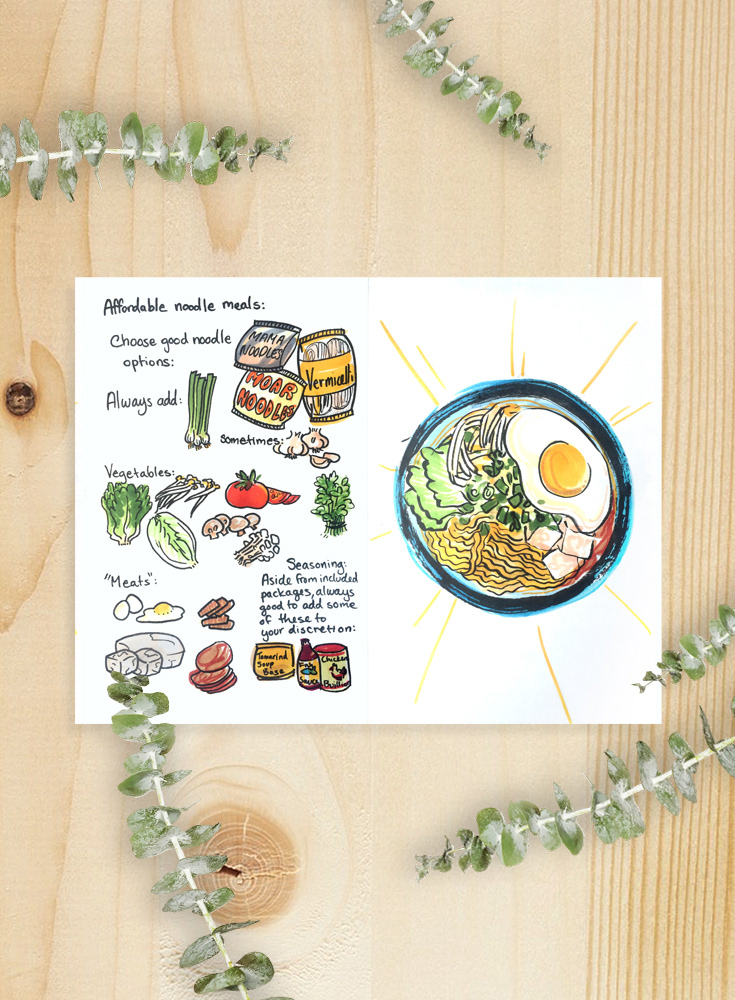 Affordable noodle meals:
Choose good noodle
options:
MAMA
NOODLES
MOAR
NOODLES
Vermicelli
Always add:
Sometimes:
Vegetables:
"Meats":
Seasoning:
Aside from included
packages, always
good to add some
of these to
your discretion:
Tamarind
Soup
Base
Fish
Sauce
Chicken
Bullion